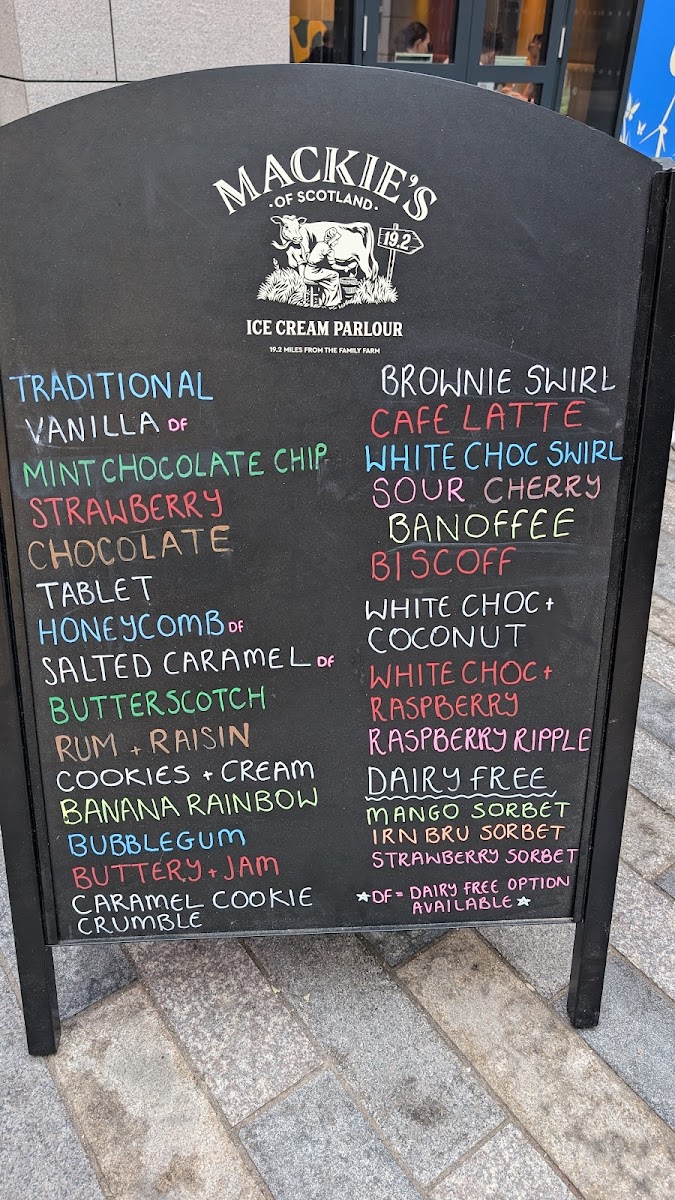 MACKIE'S
·OF SCOTLAND·
19.2
ICE CREAM PARLOUR
19.2 MILES FROM THE FAMILY FARM
TRADITIONAL
VANILLA DF
MINT CHOCOLATE CHIP
STRAWBERRY
CHOCOLATE
TABLET
HONEYCOMB DF
SALTED CARAMEL DF
BUTTERSCOTCH
RUM + RAISIN
COOKIES + CREAM
BANANA RAINBOW
BUBBLEGUM
BUTTERY + JAM
CARAMEL COOKIE
CRUMBLE
BROWNIE SWIRL
CAFE LATTE
WHITE CHOC SWIRL
SOUR CHERRY
BANOFFEE
BISCOFF
WHITE CHOC +
COCONUT
WHITE CHOC +
RASPBERRY
RASPBERRY RIPPLE
DAIRY FREE
MANGO SORBET
IRN BRU SORBET
STRAWBERRY SORBET
★DF = DAIRY FREE OPTION
AVAILABLE★